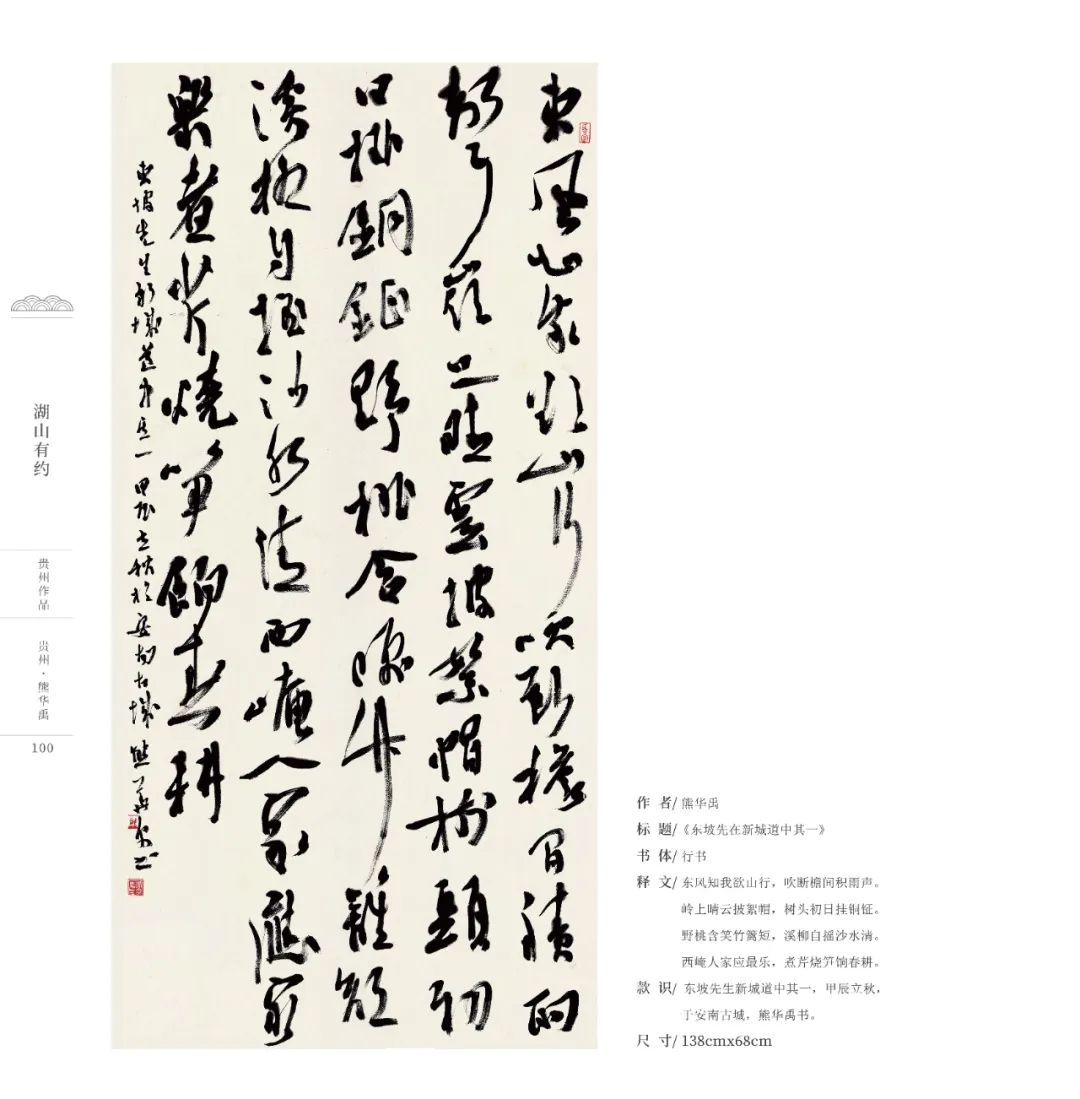 東風知我欲山行吹斷檐間積雨
聲嶺上晴雲披絮帽樹頭初
日掛銅鉦野桃含咲竹籬短
溪柳自搖沙水清西崦人家應最
樂煮芹燒筍餉春耕
東坡先生新城道中其一甲辰立秋於安南古城熊華禹书
湖山有约
贵州作品
贵州·熊华禹
100
作 者/ 熊华禹
标 题/《东坡先在新城道中其一》
书 体/ 行书
释 文/ 东风知我欲山行，吹断檐间积雨声。
岭上晴云披絮帽，树头初日挂铜钲。
野桃含笑竹篱短，溪柳自摇沙水清。
西崦人家应最乐，煮芹烧笋饷春耕。
款 识/ 东坡先生新城道中其一，甲辰立秋，
于安南古城，熊华禹书。
尺 寸/ 138cmx68cm